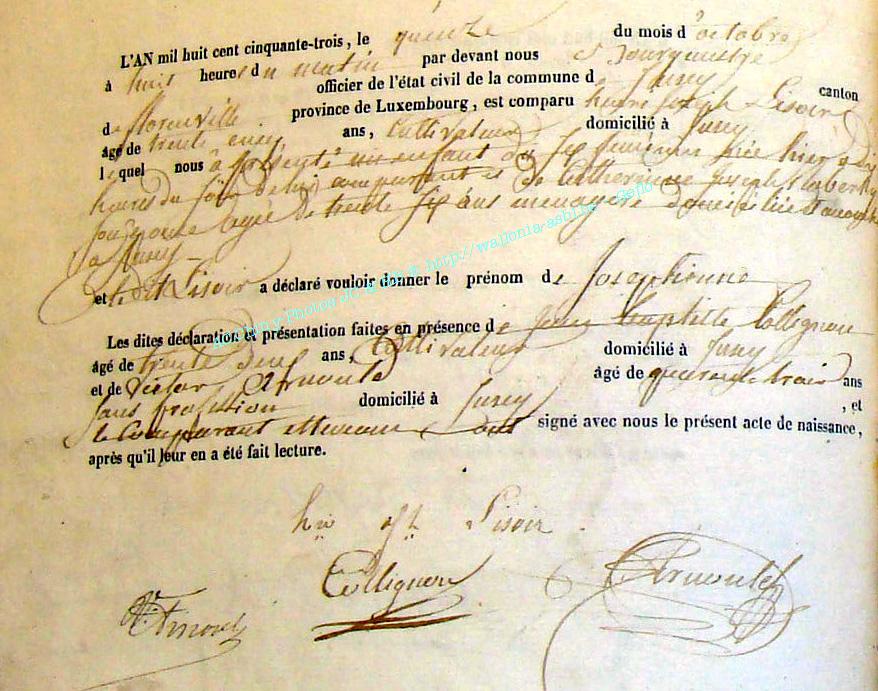 L'AN mil huit cent cinquante-trois, le quinze du mois d'octobre
à huit heures du matin par devant nous
officier de l'état civil de la commune d Jusey canton
de florenville province de Luxembourg, est comparu henri Joseph Lisoir
âgé de trente ans, Cultivateur domicilié à Jusey
lequel nous à présenté un enfant du sexe féminin née hier à dix
heures du de lui comparant et de Catherinne Joseph Lambert
son épouse agée de trente six ans menagère domiciliée
à Jusey
et ledit Lisoir a déclaré vouloir donner le prénom de Josephinne
Les dites déclaration et présentation faites en présence de Jean baptiste Collignon
âgé de trente ans, Cultivateur domicilié à Jusey
et de Victor Arnould âgé de quarante trois ans
sans profession domicilié à Jusey , et
le Comparant et temoins ont signé avec nous le présent acte de naissance,
après qu'il leur en a été fait lecture.
hri jph Lisoir
Collignon
Arnould
Vr Arnould
http://wallonia-asbl.be